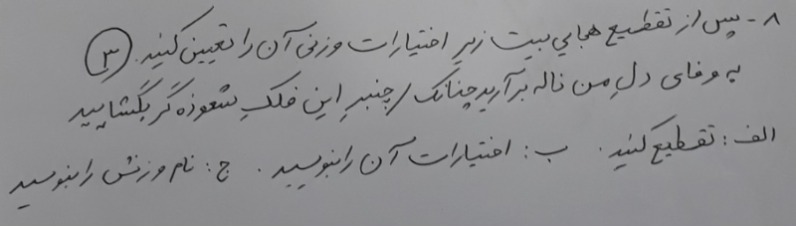 ۸- پس از تقطیع هجایی بیت زیر اختیارات وزنی آن را تعیین کنید. (۳)
به وفای دلِ من ناله برآرید چنانک / چنبرِ این فلکِ شعوذه گر بگشایید
الف: تقطیع کنید. ب: اختیارات آن را بنویسید. ج: نام وزنش را بنویسید